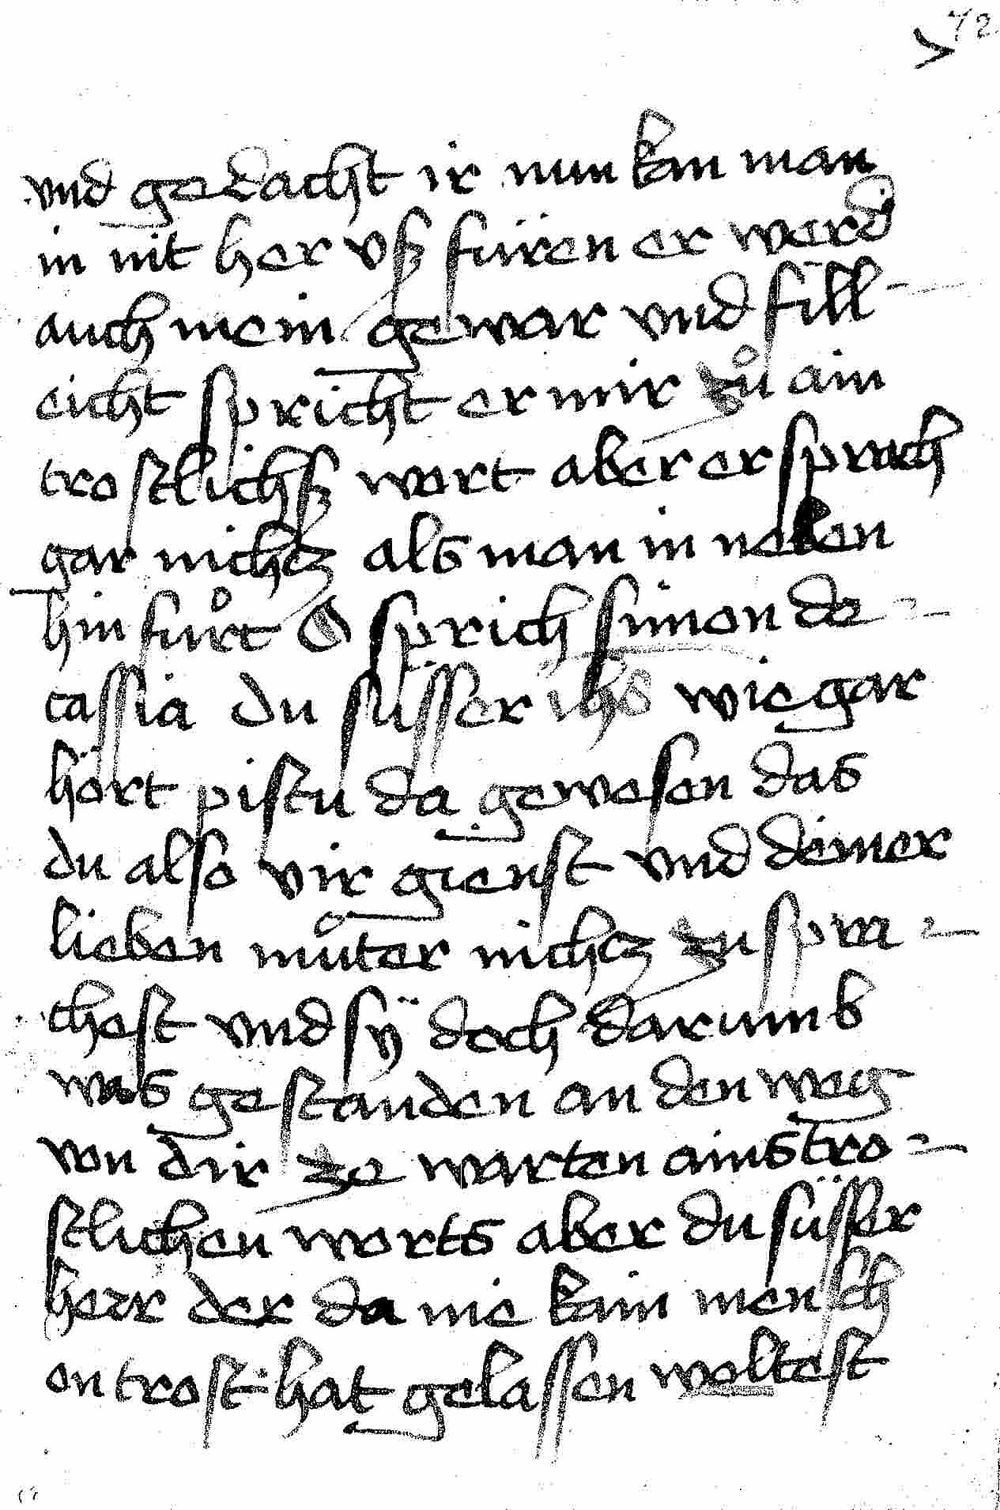 72
vnd gedacht ir nun kan man
in nit her vß füren er werd
auch mein gewar vnd fill-
eicht spricht er mir zů ain
trostlichß wort aber er sprach
gar nichcz als man in neben
hin fůrt O sprich simon de-
cassia du süsser ihs wie gar
hört pistu da gewesen das
du also vir gienst vnd deiner
lieben můter nichcz zu spra-
chest vnd sÿ doch darumb
was gestanden an den weg
von dir ze warten ains tro-
stlichen worts aber du süsser
herr der da nie kain mensch
on trost hat gelassen woltest